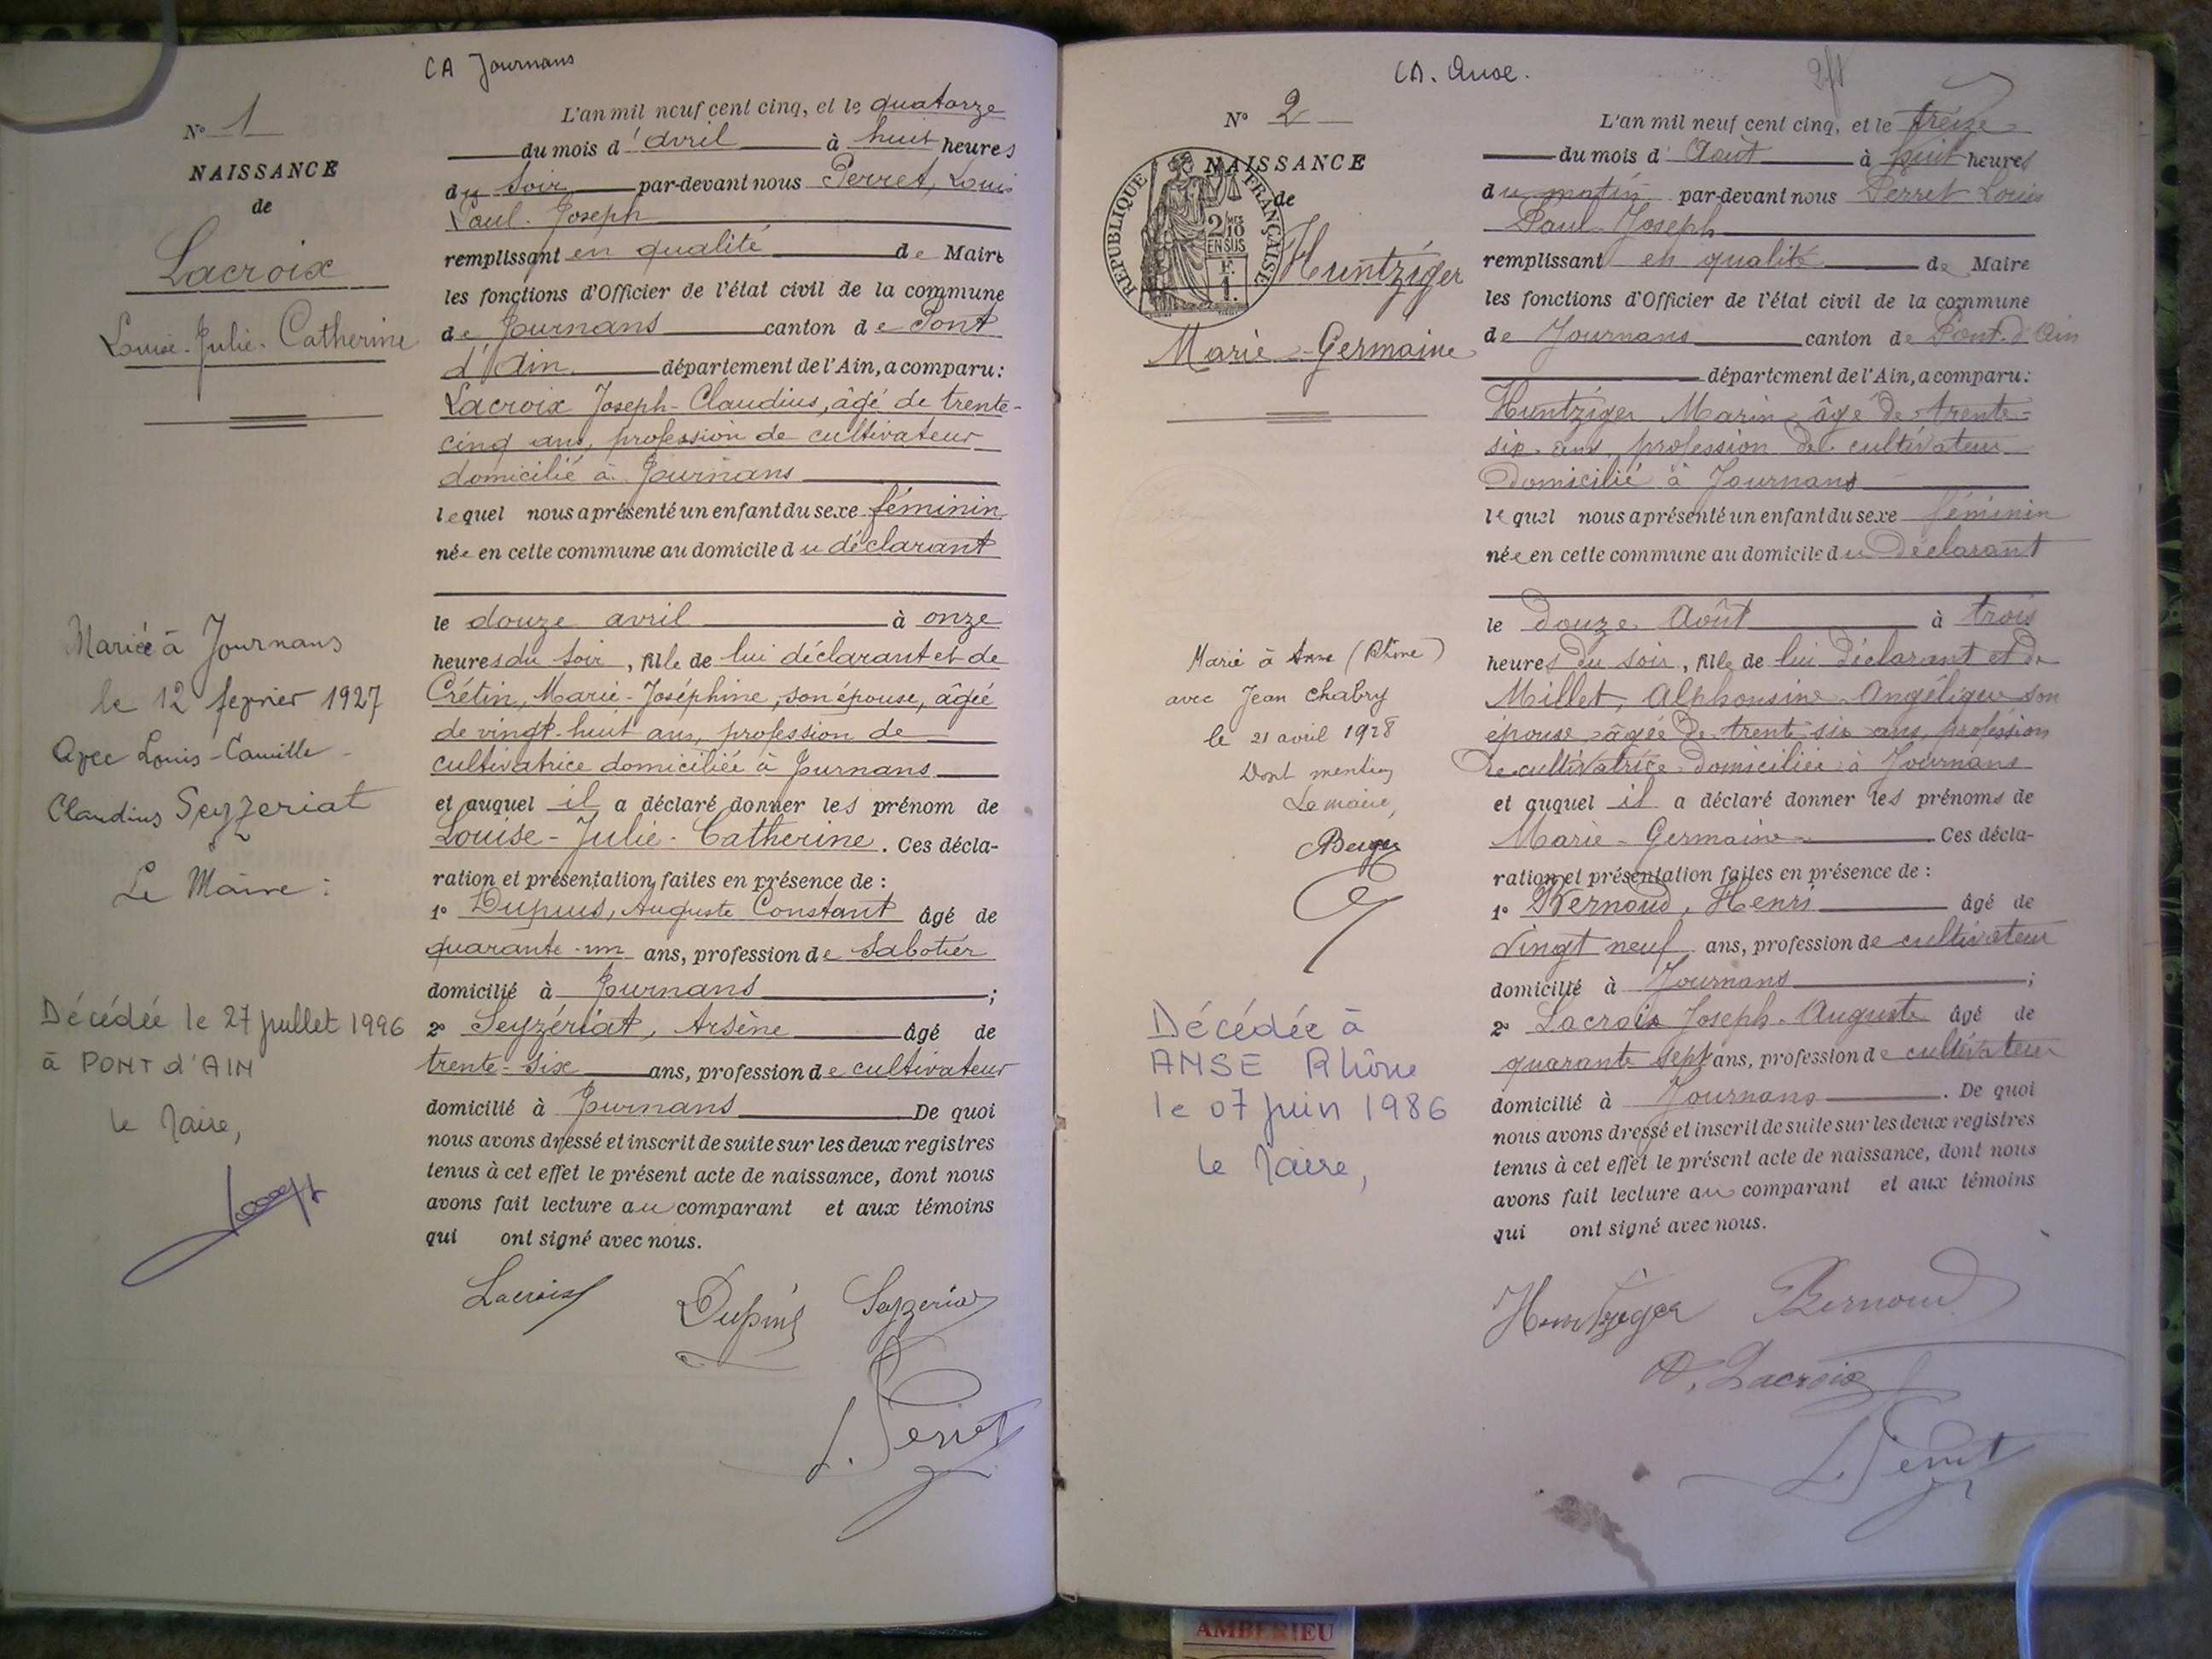 CA Journans
N° 1
NAISSANCE
de
Lacroix
Louise-Julie-Catherine
L'an mil neuf cent cinq, et le quatorze
du mois d'avril à huit heures
du soir par-devant nous Perret, Louis
Paul-Joseph
remplissant en qualité de Maire
les fonctions d'Officier de l'état civil de la commune
de Journans canton de Pont
d'Ain département de l'Ain, a comparu:
Lacroix Joseph-Claudius, âgé de trente-
cinq ans, profession de cultivateur
domicilié à Journans
lequel nous a présenté un enfant du sexe féminin
née en cette commune au domicile du déclarant
le douze avril à onze
heures du soir, fille de lui déclarant et de
Crétin, Marie-Joséphine, son épouse, âgée
de vingt-huit ans, profession de
cultivatrice domiciliée à Journans
et auquel il a déclaré donner les prénom de
Louise-Julie-Catherine. Ces décla-
ration et présentation faites en présence de :
1° Dupuis, Auguste Constant âgé de
quarante-un ans, profession de sabotier
domicilié à Journans ;
2° Seyzériat, Arsène âgé de
trente-six ans, profession de cultivateur
domicilié à Journans De quoi
nous avons dressé et inscrit de suite sur les deux registres
tenus à cet effet le présent acte de naissance, dont nous
avons fait lecture au comparant et aux témoins
qui ont signé avec nous.
Lacroix Dupuis Seyzeriat
L. Perret
Mariée à Journans
le 12 fevrier 1927
Avec Louis-Camille
Claudius Seyzeriat
Le Maire :
Décédée le 27 juillet 1996
à PONT d'AIN
le Maire,
CA. Anse.
N° 2
NAISSANCE
de
REPUBLIQUE FRANÇAISE
2/10 EN SUS
F.
1.
Huntziger
Marie-Germaine
L'an mil neuf cent cinq, et le treize
du mois d'Août à huit heures
du matin par-devant nous Perret Louis
Paul Joseph
remplissant en qualité de Maire
les fonctions d'Officier de l'état civil de la commune
de Journans canton de Pont-d'Ain
département de l'Ain, a comparu:
Huntziger Marin âgé de trente-
six ans, profession de cultivateur
domicilié à Journans
lequel nous a présenté un enfant du sexe féminin
née en cette commune au domicile du déclarant
le douze Août à trois
heures du soir, fille de lui déclarant et de
Millet, Alphonsine Angélique son
épouse, âgée de trente six ans, profession
de cultivatrice domiciliée à Journans
et auquel il a déclaré donner les prénoms de
Marie-Germaine. Ces décla-
ration et présentation faites en présence de :
1° Bernoud, Henri âgé de
vingt neuf ans, profession de cultivateur
domicilié à Journans ;
2° Lacroix Joseph-Auguste âgé de
quarante sept ans, profession de cultivateur
domicilié à Journans. De quoi
nous avons dressé et inscrit de suite sur les deux registres
tenus à cet effet le présent acte de naissance, dont nous
avons fait lecture au comparant et aux témoins
qui ont signé avec nous.
Huntziger Bernoud
A. Lacroix
L. Perret
Marié à Anse (Rhône)
avec Jean Chabry
le 21 avril 1928
Dont mention
Le maire,
Décédée à
ANSE Rhône
le 07 juin 1986
le Maire,
AMBERIEU